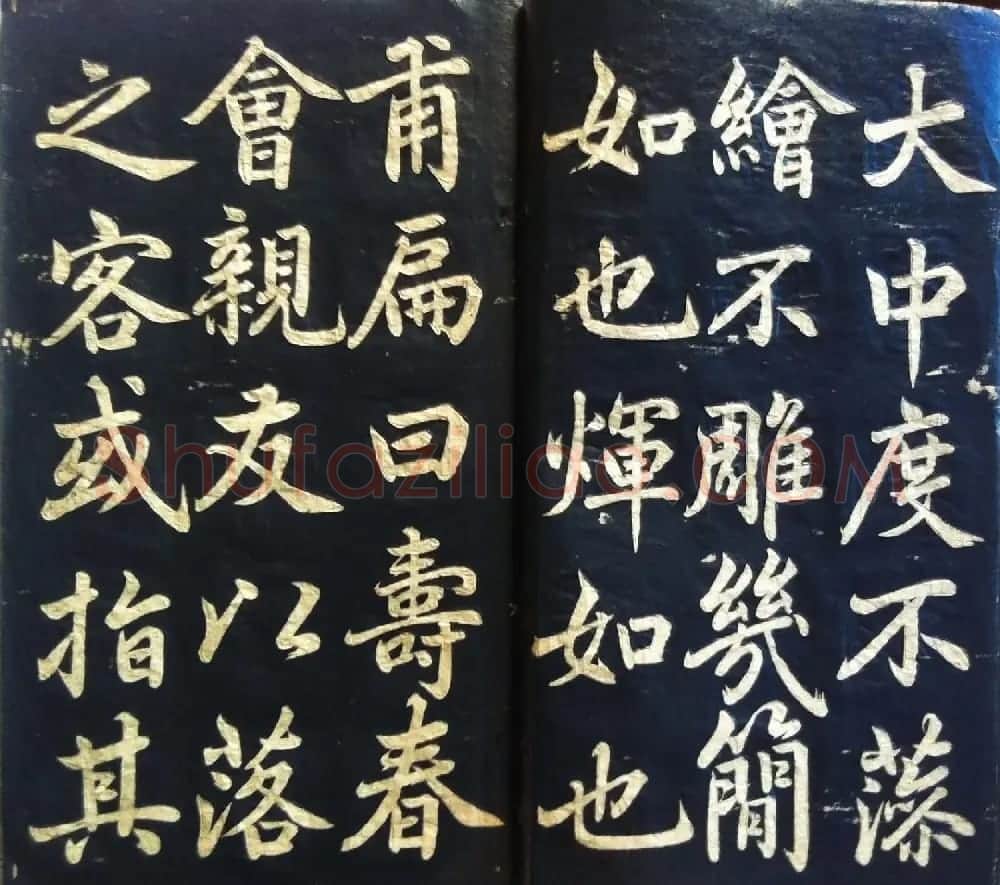 大中度不藻
繪不雕幾簡
如也煇如也
甫扁曰壽春
會親友以落
之客或指其
Shufaziliao.com